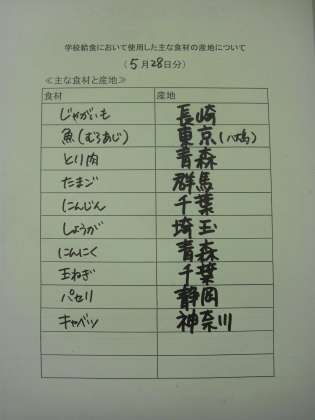 学校給食において使用した主な食材の産地について
（5月28日分）
≪主な食材と産地≫
食材 産地
じゃがいも 長崎
魚(むろあじ) 東京(八丈島)
とり肉 青森
たまご 群馬
にんじん 千葉
しょうが 埼玉
にんにく 青森
玉ねぎ 千葉
パセリ 静岡
キャベツ 神奈川